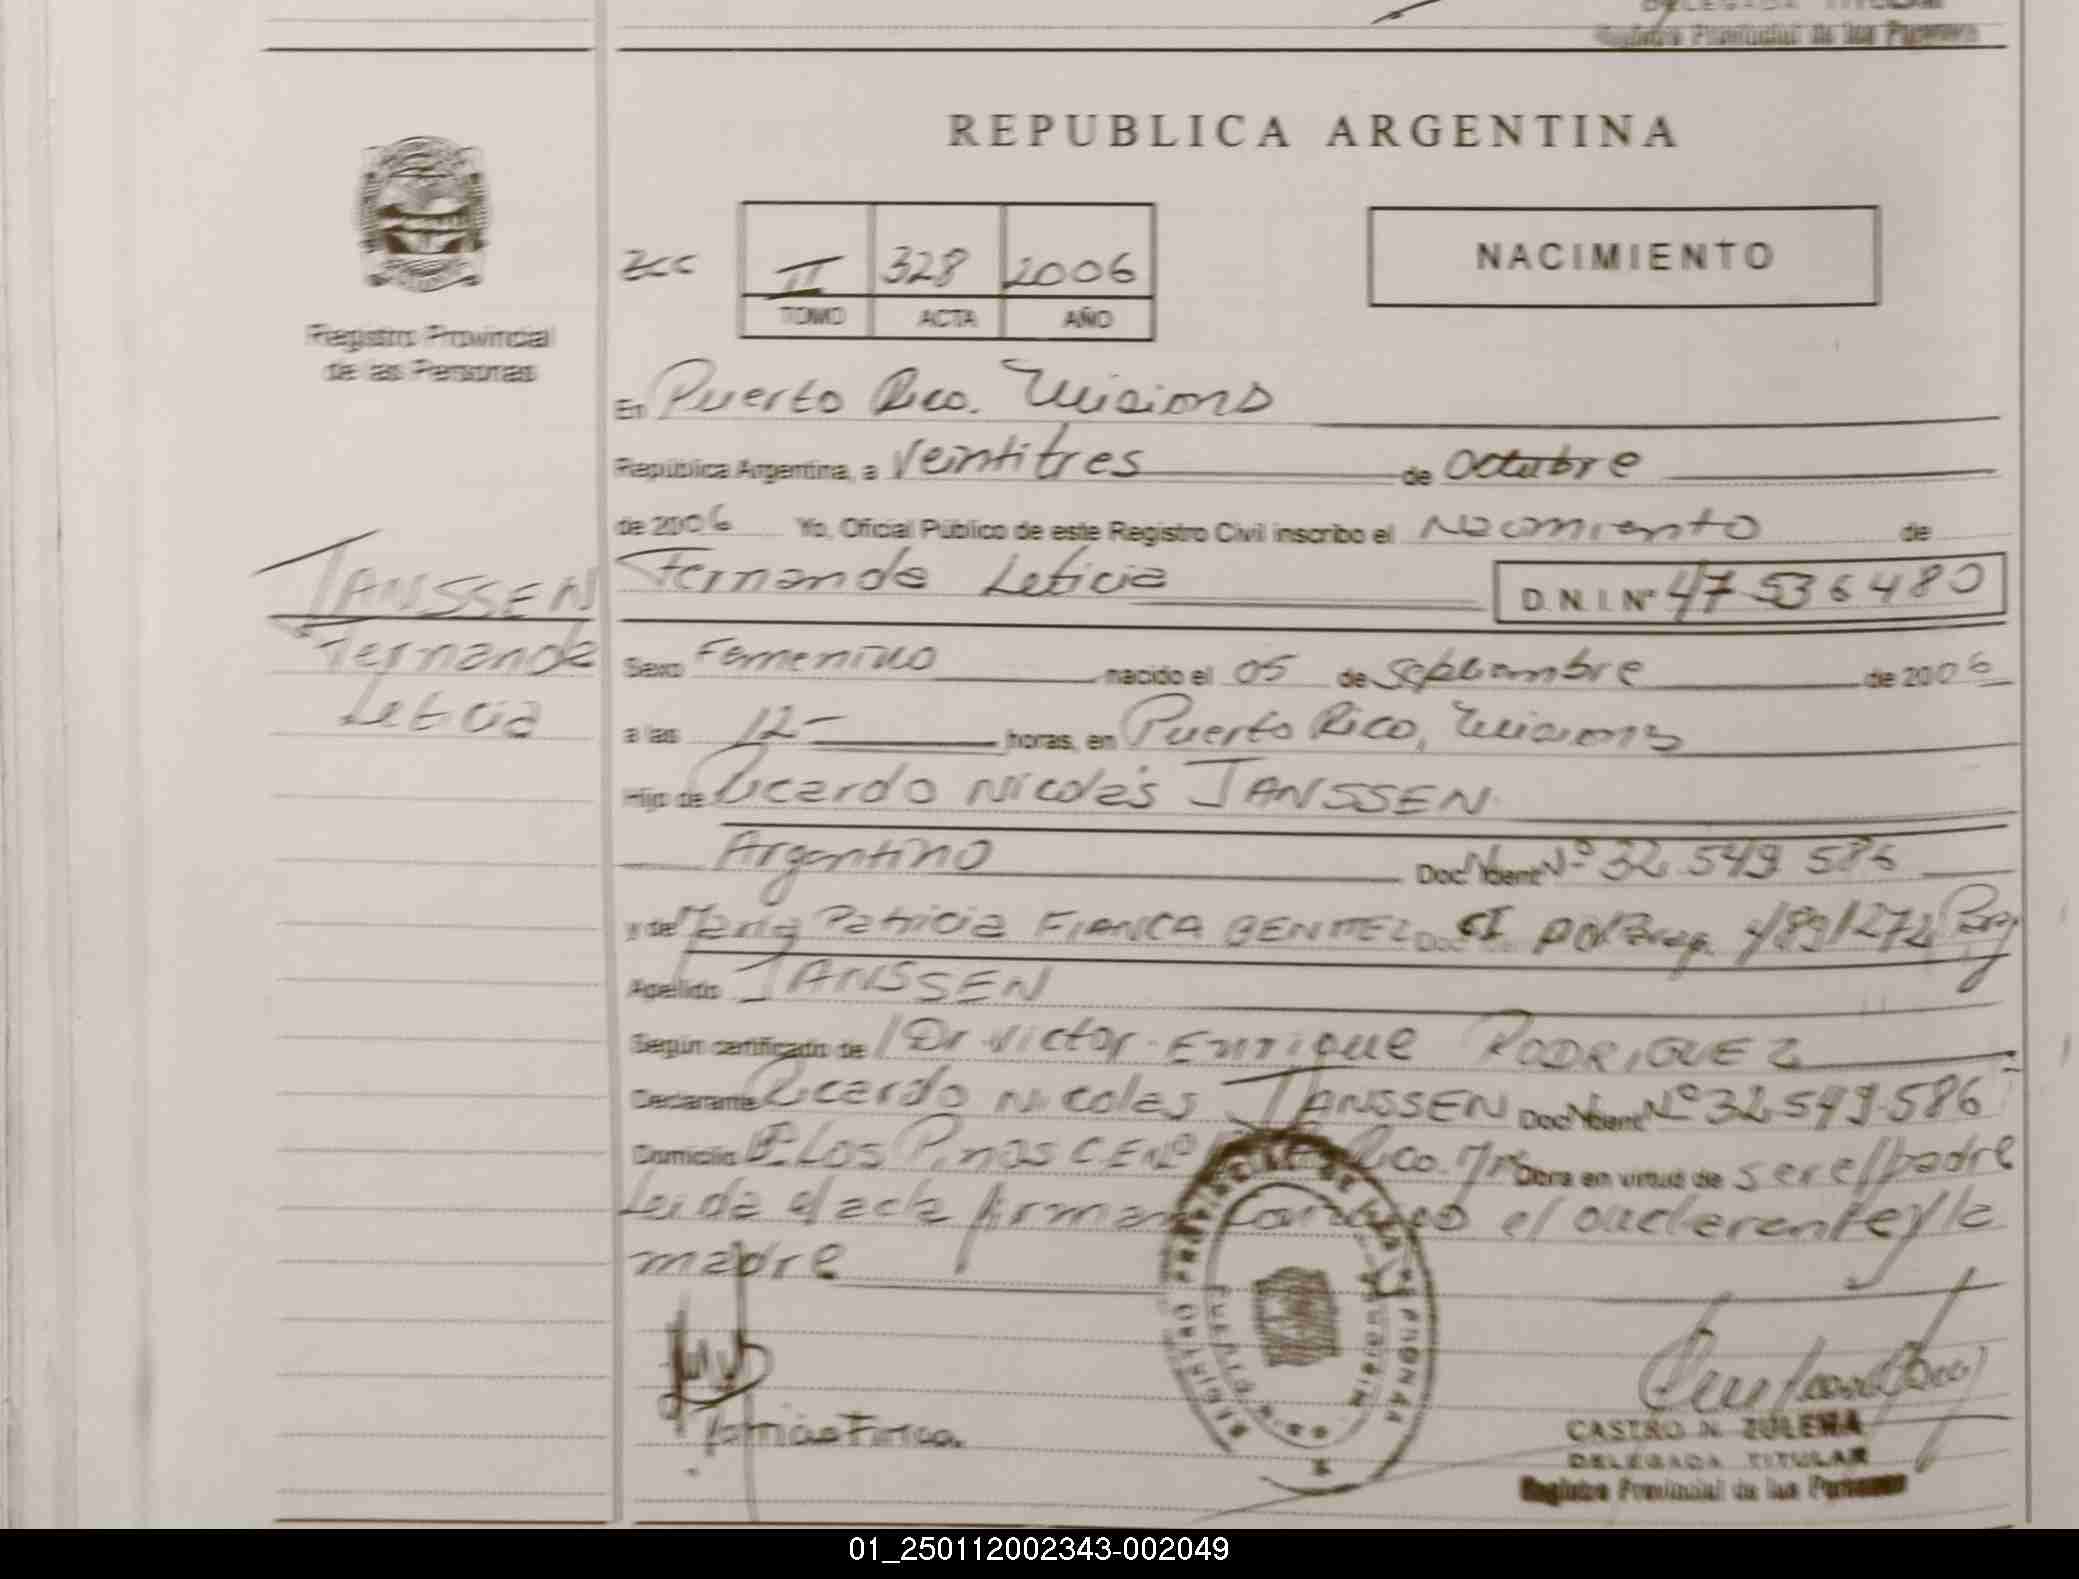 DELEGADA TITULAR
Registro Provincial de las Personas
REPUBLICA ARGENTINA
II 328 2006
TOMO ACTA AÑO
NACIMIENTO
Registro Provincial
de las Personas
En Puerto Rico. Misiones
República Argentina, a Veintitres de Octubre
de 2006 Yo, Oficial Público de este Registro Civil inscribo el Nacimiento de
JANSSEN
Fernanda
Leticia
Fernanda Leticia D.N.I. Nº 47 536 480
Sexo Femenino nacido el 05 de Septiembre de 2006
a las 12- horas, en Puerto Rico, Misiones
Hijo de Ricardo Nicolás JANSSEN
Argentino Doc. Ident Nº 32 549 586
y de María Patricia FIANCA BENITEZ Doc CI Pol Parag.
Apellido JANSSEN
Según certificado de Dr Victor Enrique RODRIGUEZ
Declarante Ricardo Nicolas JANSSEN Doc. Ident Nº 32.549.586
Domicilio Los Pinos Rico. Obra en virtud de ser el padre
Leida el acta firman conmigo el declarante y la
madre
CASTRO N. ZULEMA
DELEGADA TITULAR
Registro Provincial de las Personas
01_250112002343-002049